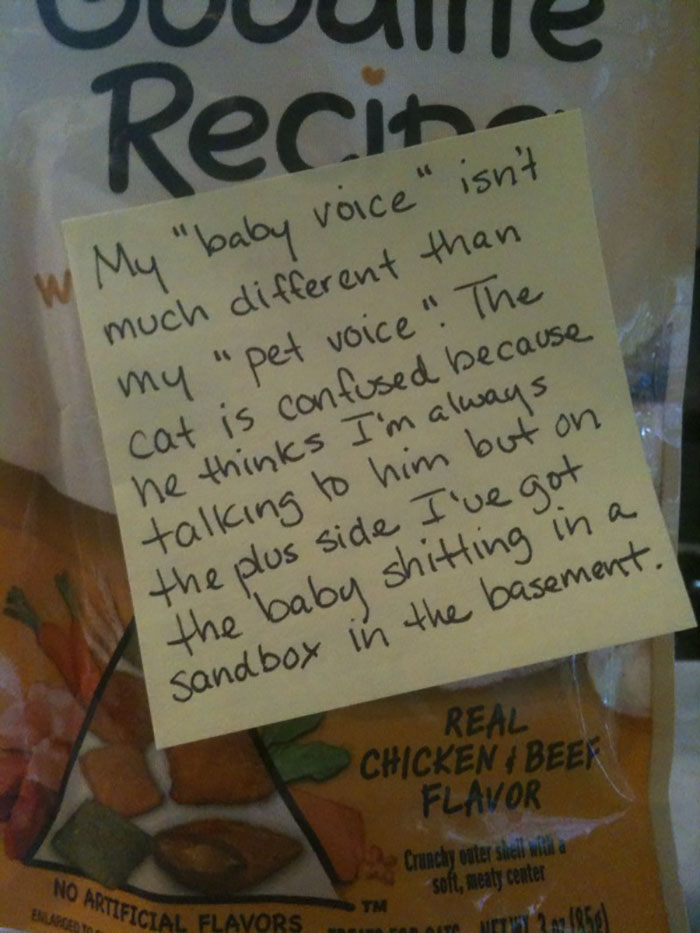 Goodlife
Recipe
My "baby voice" isn't
much different than
my "pet voice". The
cat is confused because
he thinks I'm always
talking to him but on
the plus side I've got
the baby shitting in a
sandbox in the basement.
REAL
CHICKEN & BEEF
FLAVOR
Crunchy outer shell with a
soft, meaty center
TM
NO ARTIFICIAL FLAVORS
ENLARGED TO
TREATS FOR CATS NET WT 3 oz (85g)